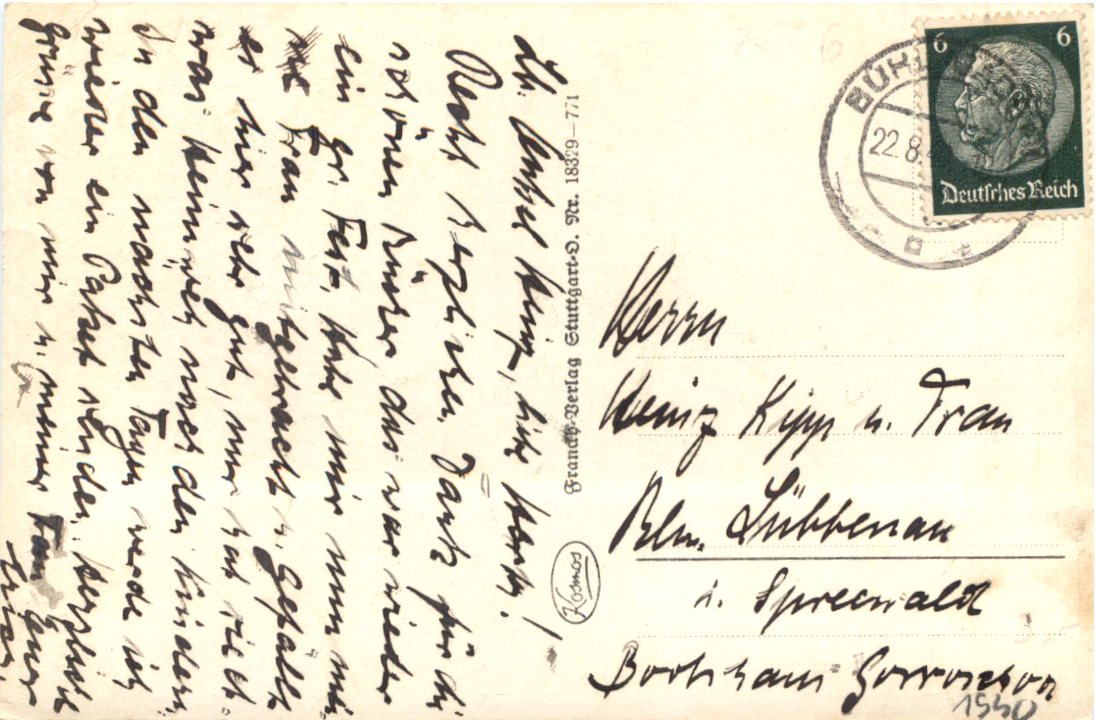 Lb. Onkel Heinz, liebe
Recht herzlichen Dank für die
schönen Bücher das war wieder
ein gr. Fest, habe mir nun meine
Frau mitgebracht u. gefällt
es hier sehr gut, nur hat sie
Heimweh nach den Kindern
In den nächsten Tagen werde ich
wieder ein Paket senden. Herzliche
Grüsse von mir u. meiner Frau Euer
Franckh-Verlag Stuttgart-O. Nr. 18329-771
Kosmos
6 6
Deutsches Reich
22.8.
Herrn
Heinz Kipp u. Frau
Lübbenau
i. Spreewald
Bootshaus
1940